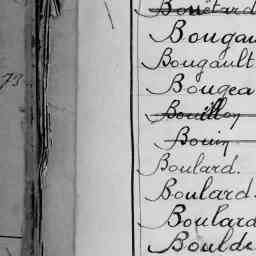 Bouétard
Bougau
Bougault
Bougea
73
Bouillon
Bouin
Boulard.
Boulard.
Boulard
Boulde